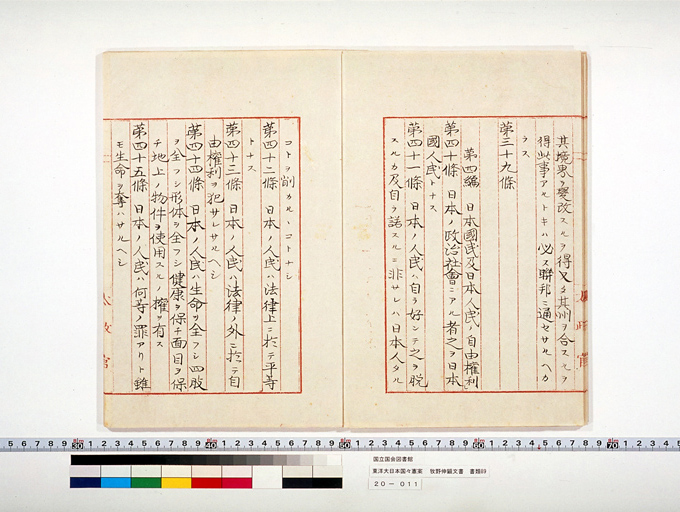 其境界ヲ変改スルヲ得又タ其州ヲ合スルヲ
得此事アルトキハ必ス聯邦ニ通セサルヘカ
ラス
第三十九條
第四編 日本國民及日本人民ノ自由權利
第四十條 日本ノ政治社會ニアル者之ヲ日本
國人民トナス
第四十一條 日本ノ人民ハ自ラ好ンテ之ヲ脱
スルカ及自ラ諾スルニ非サレハ日本人タル
コトヲ削カルヽコトナシ
第四十二條 日本ノ人民ハ法律上ニ於テ平等
トナス
第四十三條 日本ノ人民ハ法律ノ外ニ於テ自
由權利ヲ犯サレサルヘシ
第四十四條 日本ノ人民ハ生命ヲ全フシ四肢
ヲ全フシ形体ヲ全フシ健康ヲ保チ面目ヲ保
チ地上ノ物件ヲ使用スルノ權ヲ有ス
第四十五條 日本ノ人民ハ何等ノ罪アリト雖
モ生命ヲ奪ハサルヘシ
太政官
国立国会図書館
東洋大日本国々憲案 牧野伸顕文書 書類69
20-011